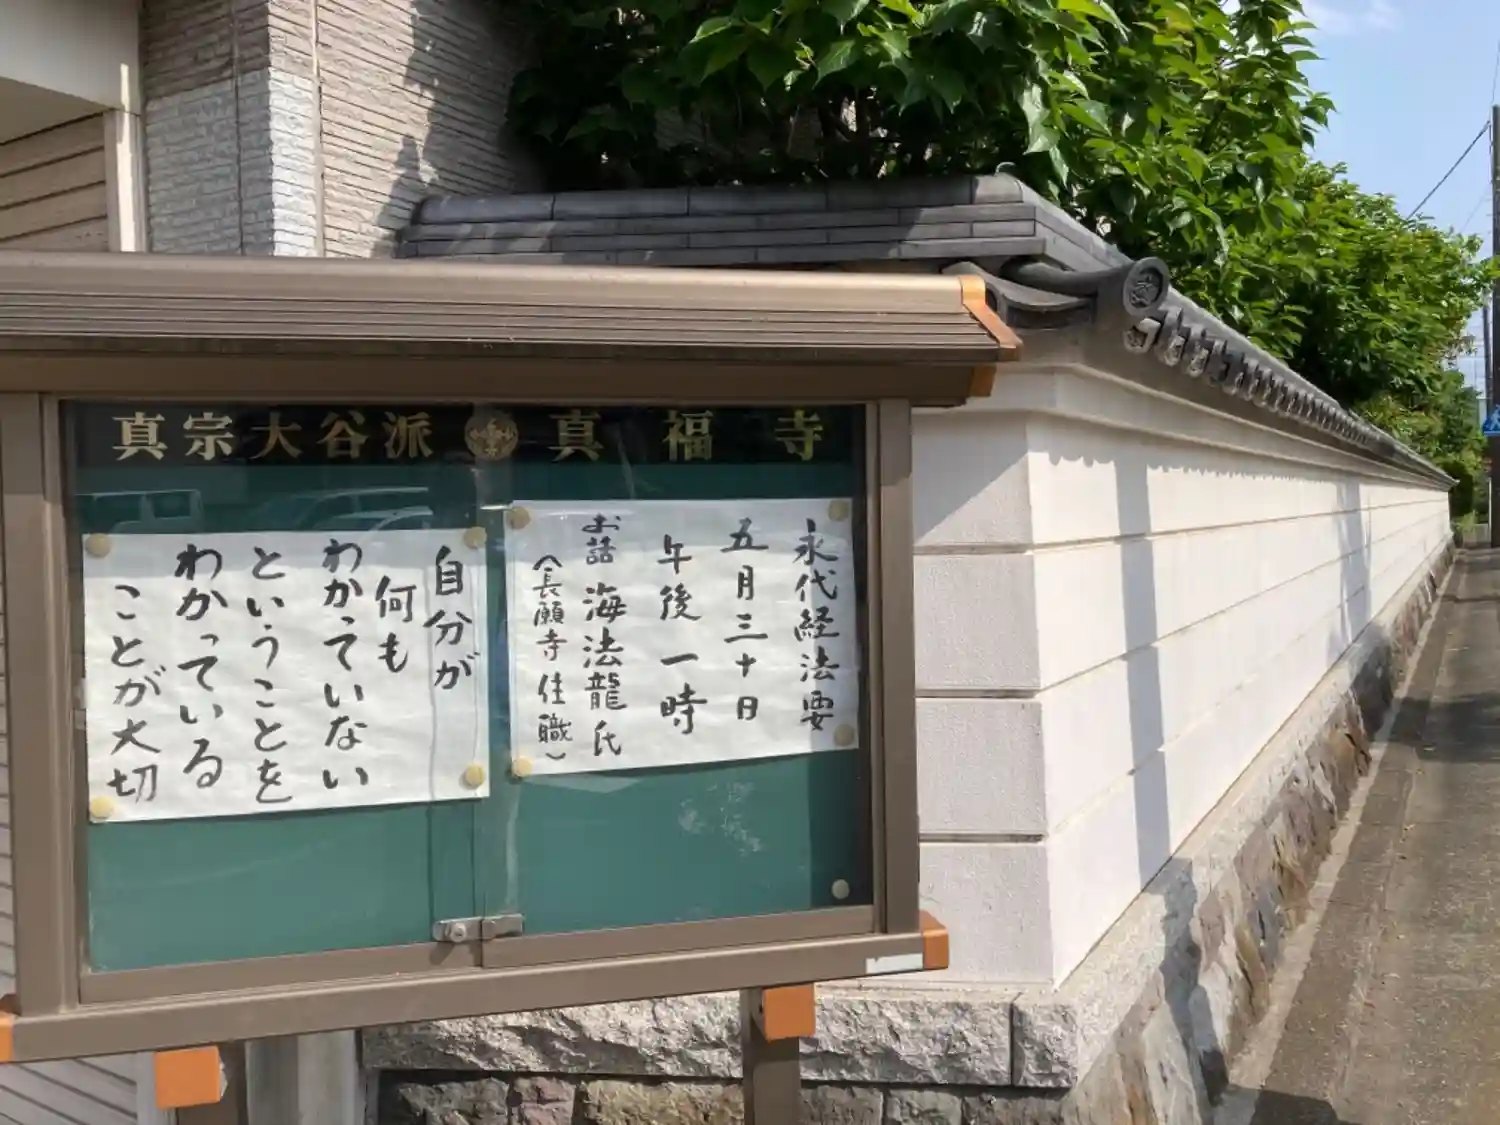 真宗大谷派 真福寺
永代経法要
五月三十日
午後一時
お話 海法龍氏
(長願寺住職)
自分が
何も
わかっていない
ということを
わかっている
ことが大切